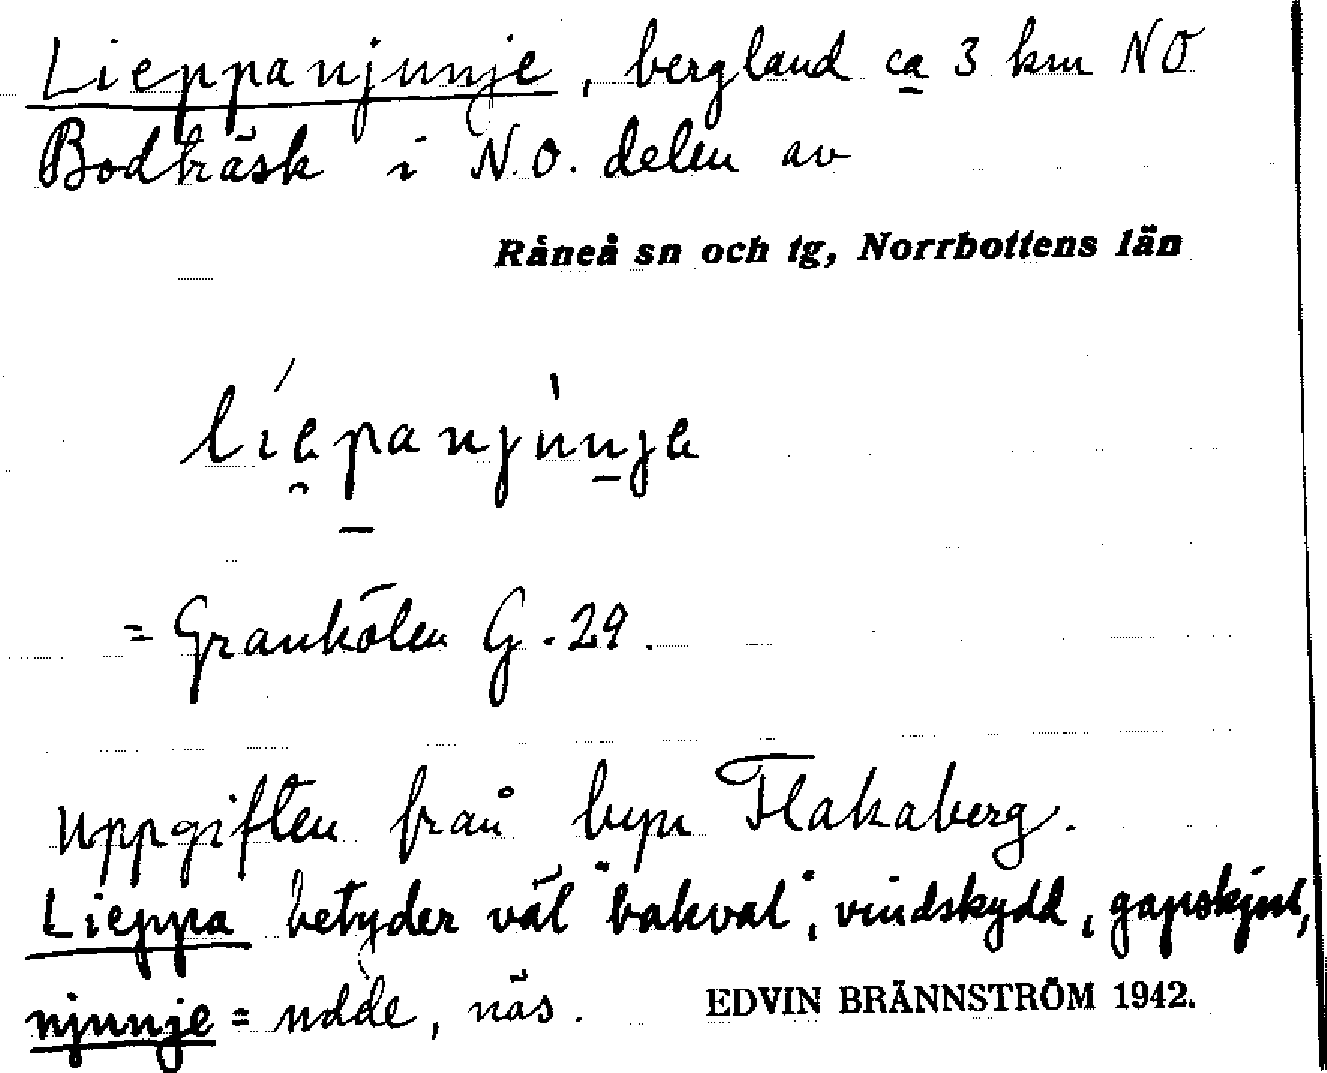 Lieppanjunje, bergland ca 3 km NO
Bodträsk i N.O. delen av
Råneå sn och tg, Norrbottens län
líepanjùnje
= Grankölen G. 29.
Uppgiften från byn Flakaberg.
Lieppa betyder väl "bakval", vindskydd, gapskjul,
njunje = udde, näs.
EDVIN BRÄNNSTRÖM 1942.